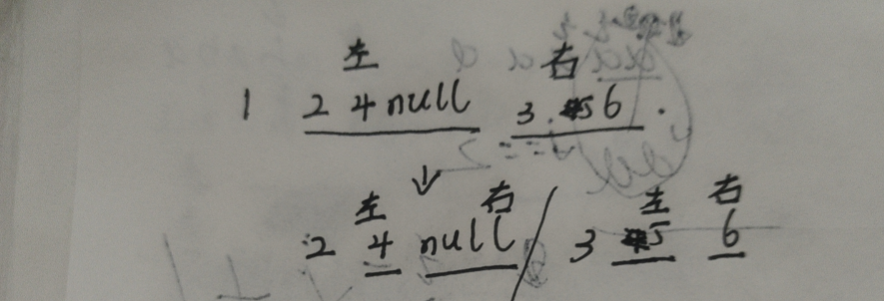 左 右
1 2 4 null 3. 5 6.
↓
左 右 左 右
2 4 null / 3 5 6